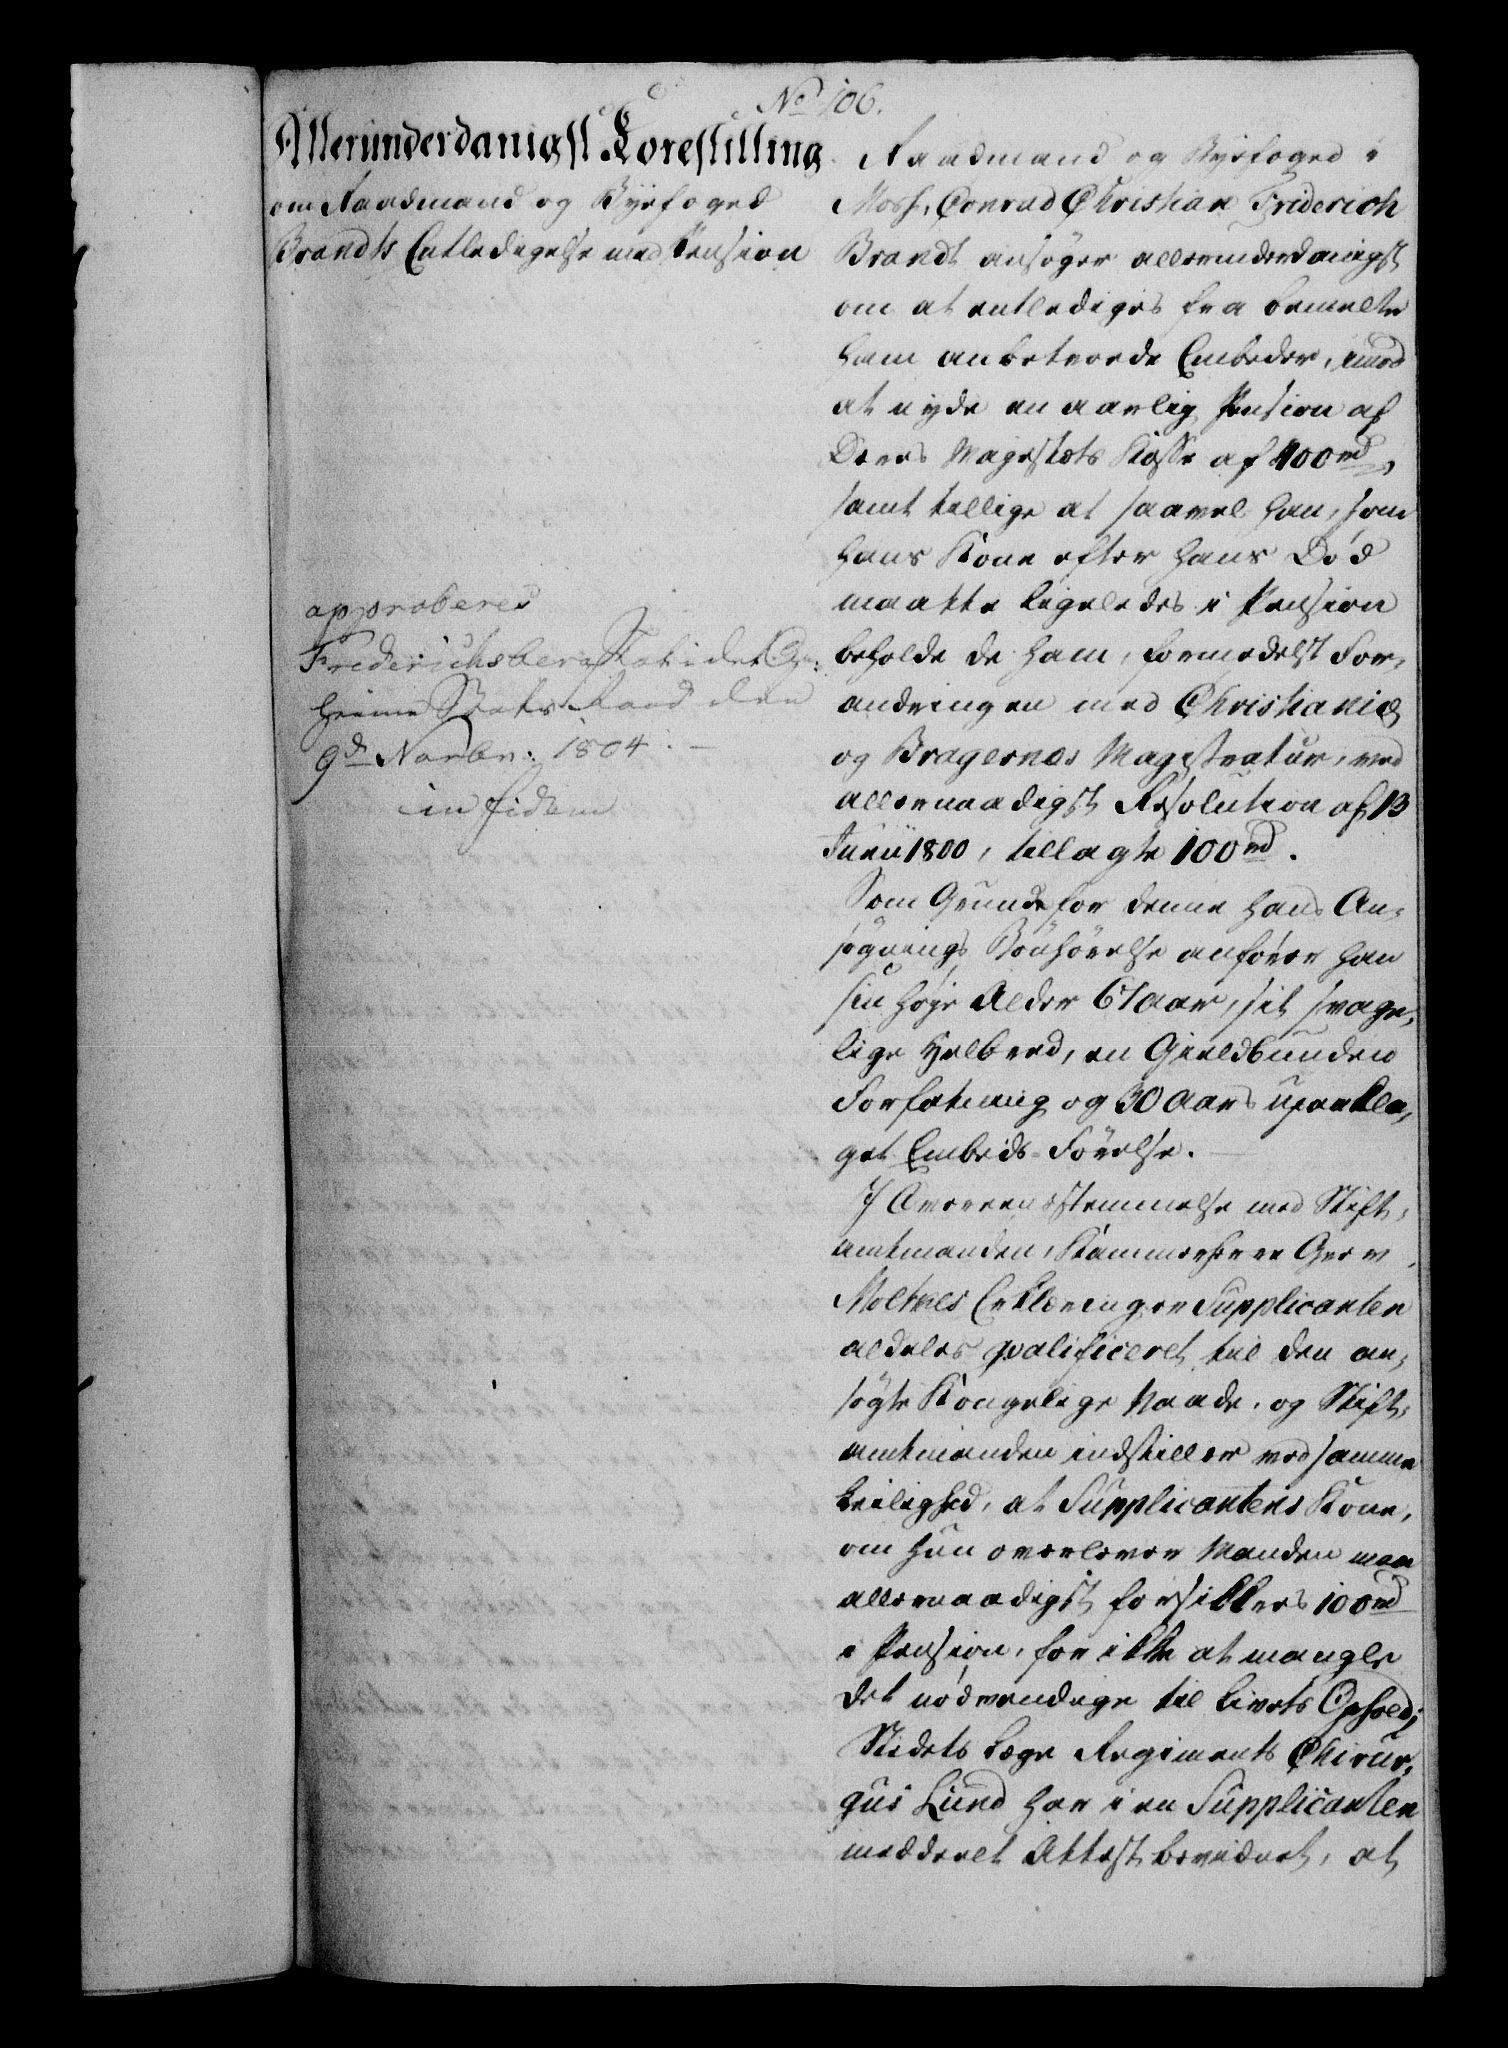 No 106.
Allerunderdanigst Forestilling
om Raadmand og Byefoged
Brandts Entledigelse med Pension
approberes
Friderichsberg Slot i det Ge-
heime Stats Raad den
9d Novbr: 1804. –
in fidem
Raadmand og Byefoged i
Moss, Conrad Christian Friderich
Brandt ansøger allerunderdanigst
om at entlediges fra bemelte
ham anbetroede Embeder, imod
at nyde en aarlig Pension af
Deres Majestæts Kasse af 400rd,
samt tillige at saavel han, som
hans Kone efter hans Død
maatte ligeledes i Pension
beholde de ham, formedelst For-
andringen med Christiania
og Bragernæs Magistratur, ved
allernaadigst Resolution af 13
Junii 1800, tillagte 100rd.
Som Grunde for denne hans An-
søgnings Bønhörelse anförer han
sin høje Alder 67 Aar, sit svage-
lige Helbred, en Gieldbunden
Forfatning og 30 Aars upaakla-
get Embeds-Förelse. –
I Overeensstemmelse med Stift-
amtmanden, Kammerherre Grev
Moltkes Erklæring er Supplicanten
aldeles qvalificeret til den an-
søgte Kongelige Naade, og Stift-
amtmanden indstiller ved samme
Leilighed, at Supplicantens Kone,
om hun overlever Manden maa
allernaadigst forsikkres 100rd
i Pension, for ikke at mangle
det nødvendige til Livets Ophold;
Stedets Læge Regiments Chirur-
gus Lund har i en Supplicanten
meddeelt Attest bevidnet, at